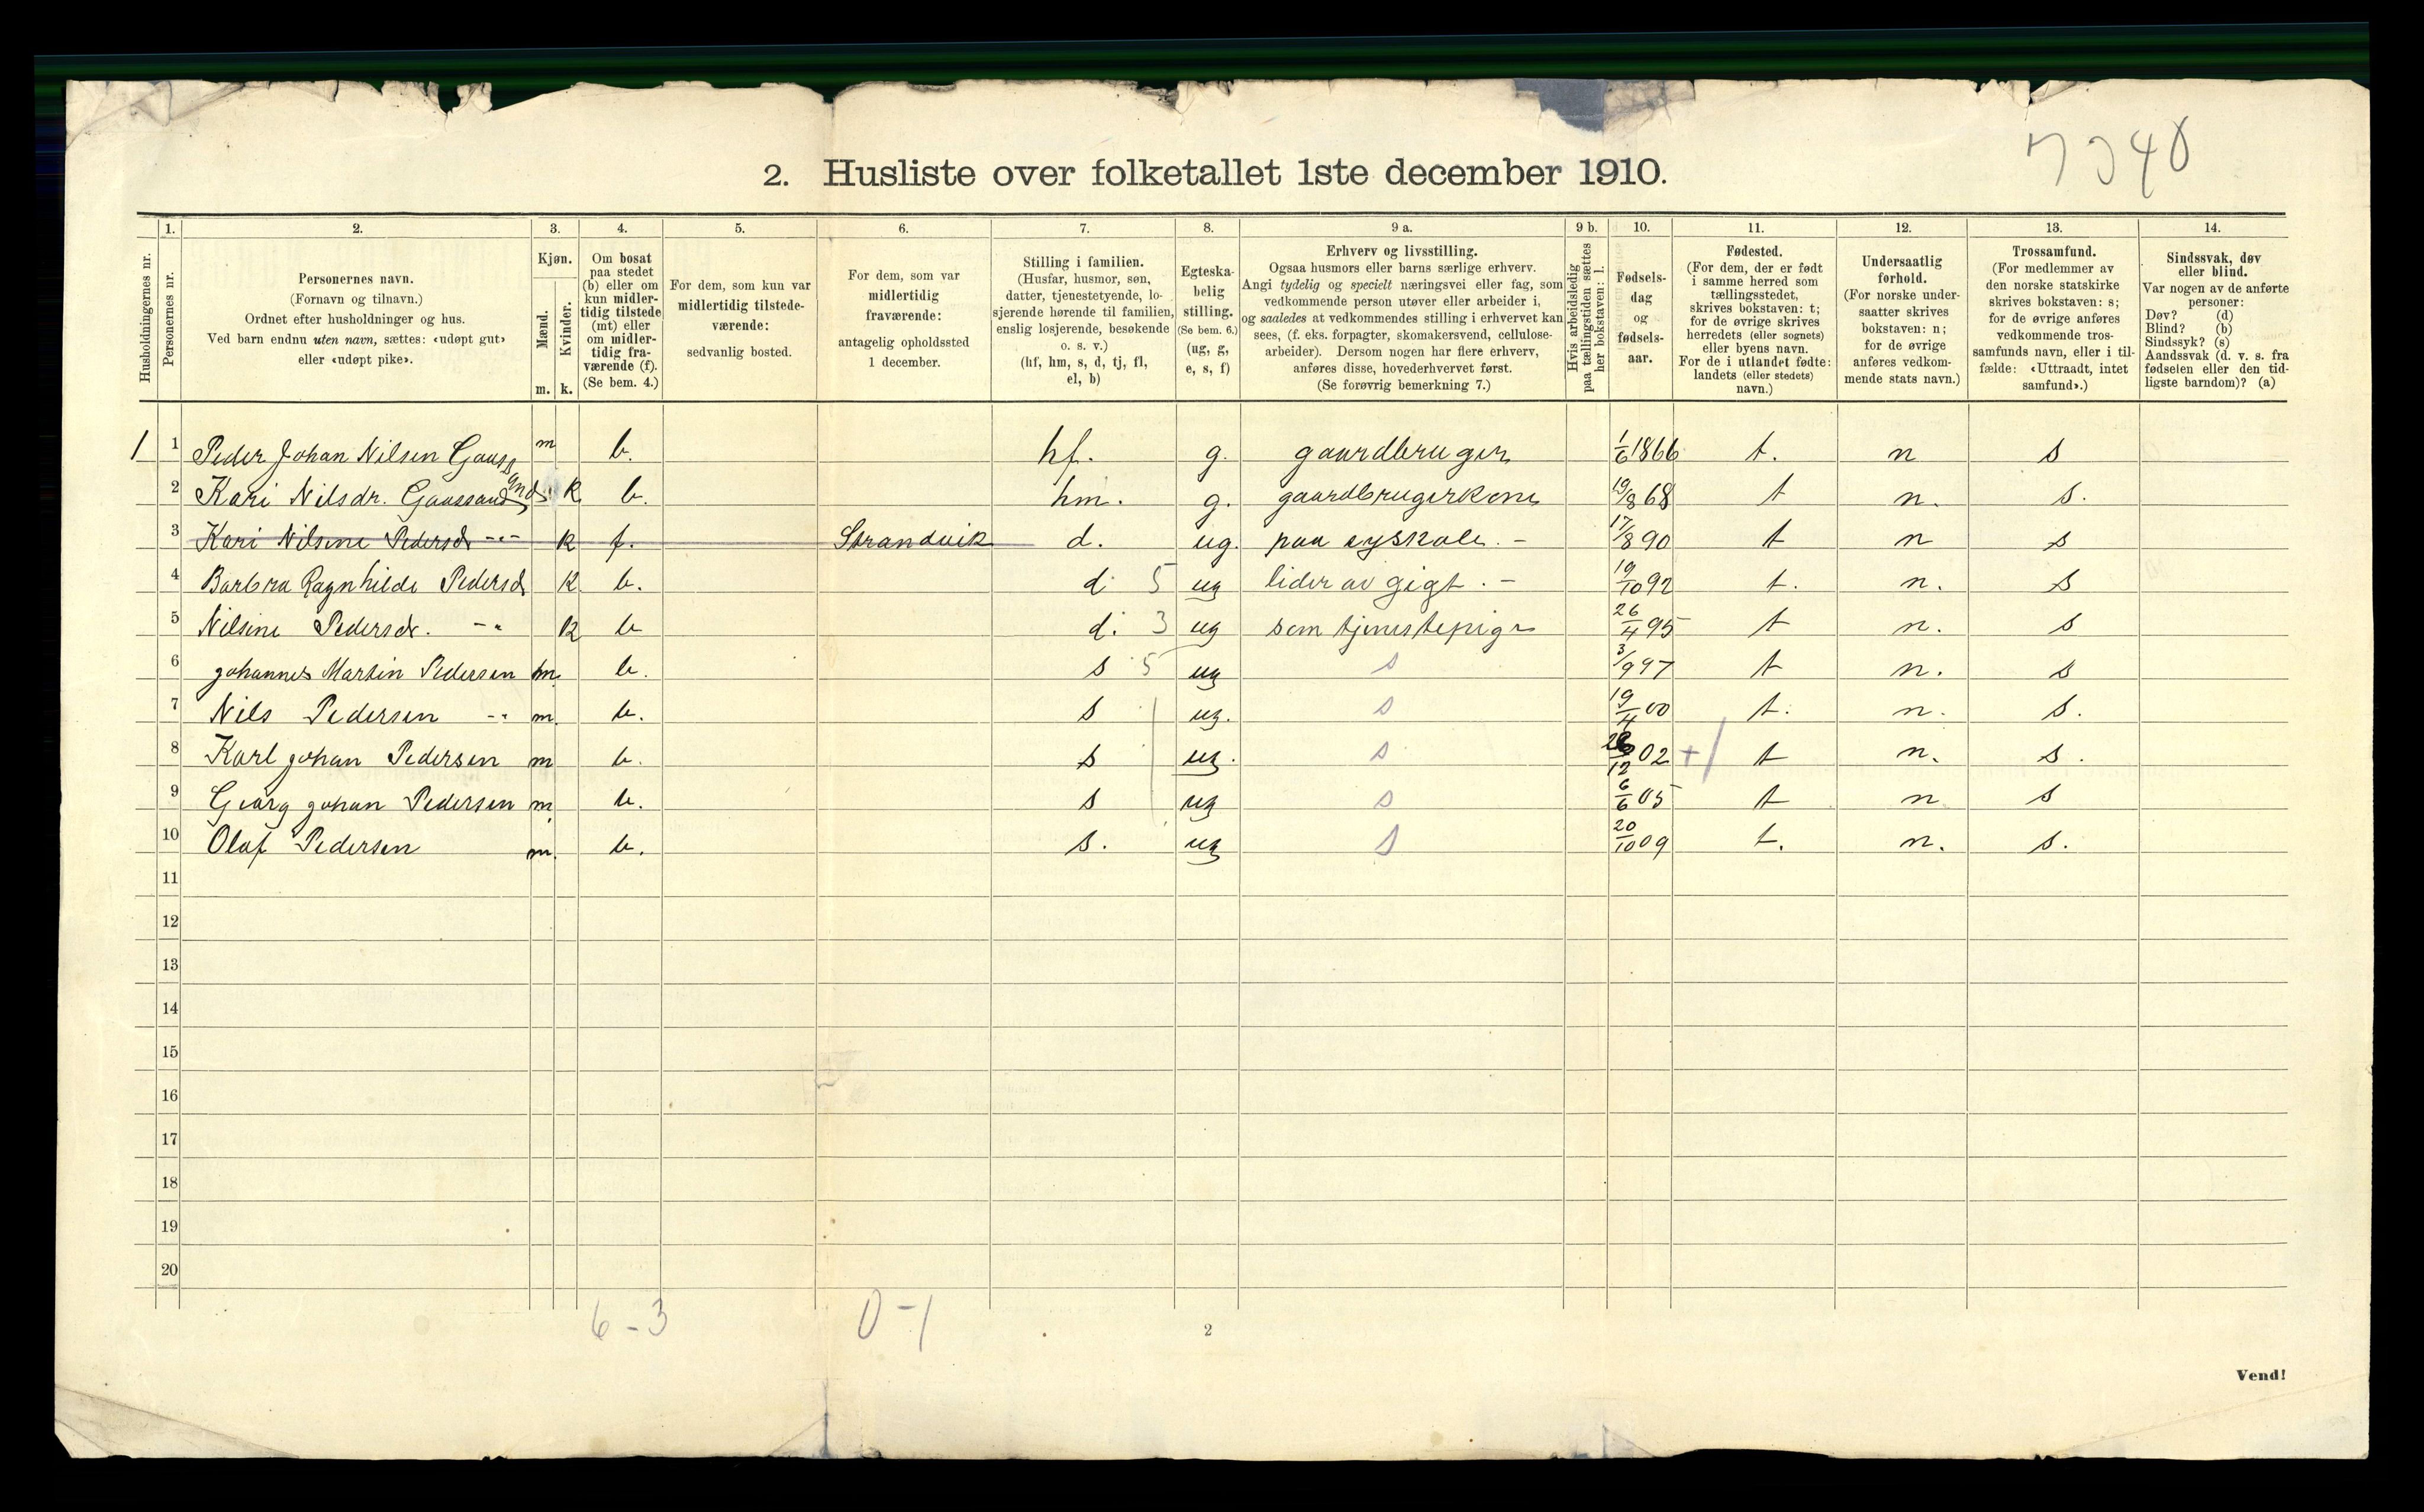 7340
2. Husliste over folketallet 1ste december 1910.
Husholdningernes nr.
1.
Personernes nr.
2.
Personernes navn.
(Fornavn og tilnavn.)
Ordnet efter husholdninger og hus.
Ved barn endnu uten navn, sættes: «udøpt gut»
eller «udøpt pike».
3.
Kjøn.
Mænd.
Kvinder.
m. k.
4.
Om bosat
paa stedet
(b) eller om
kun midler-
tidig tilstede
(mt) eller
om midler-
tidig fra-
værende (f).
(Se bem. 4.)
5.
For dem, som kun var
midlertidig tilstede-
værende:
sedvanlig bosted.
6.
For dem, som var
midlertidig
fraværende:
antagelig opholdssted
1 december.
7.
Stilling i familien.
(Husfar, husmor, søn,
datter, tjenestetyende, lo-
sjerende hørende til familien,
enslig losjerende, besøkende
o. s. v.)
(hf, hm, s, d, tj, fl,
el, b)
8.
Egteska-
belig
stilling.
(Se bem. 6.)
(ug, g,
e, s, f)
9 a.
Erhverv og livsstilling.
Ogsaa husmors eller barns særlige erhverv.
Angi tydelig og specielt næringsvei eller fag, som
vedkommende person utøver eller arbeider i,
og saaledes at vedkommendes stilling i erhvervet kan
sees, (f. eks. forpagter, skomakersvend, cellulose-
arbeider). Dersom nogen har flere erhverv,
anføres disse, hovederhvervet først.
(Se forøvrig bemerkning 7.)
9 b.
Hvis arbeidsledig
paa tællingstiden sættes
her bokstaven: l.
10.
Fødsels-
dag
og
fødsels-
aar.
11.
Fødested.
(For dem, der er født
i samme herred som
tællingsstedet,
skrives bokstaven: t;
for de øvrige skrives
herredets (eller sognets)
eller byens navn.
For de i utlandet fødte:
landets (eller stedets)
navn.)
12.
Undersaatlig
forhold.
(For norske under-
saatter skrives
bokstaven: n;
for de øvrige
anføres vedkom-
mende stats navn.)
13.
Trossamfund.
(For medlemmer av
den norske statskirke
skrives bokstaven: s;
for de øvrige anføres
vedkommende tros-
samfunds navn, eller i til-
fælde: «Uttraadt, intet
samfund».)
14.
Sindssvak, døv
eller blind.
Var nogen av de anførte
personer:
Døv? (d)
Blind? (b)
Sindssyk? (s)
Aandssvak (d. v. s. fra
fødselen eller den tid-
ligste barndom)? (a)
1 1 Peder Johan Nilsen Gaassand m b. hf. g. gaardbruger 1/6 1866 t. n s
2 Kari Nilsdr. Gaassand k b. hm. g. gaardbrugerkone 19/8 68 t n. s.
3 Kari Nilsine Pedersdr -"- k f. Strandvik d. ug. paa syskole. - 17/8 90 t n s
4 Barbra Ragnhilde Pedersdr k. b. d. 5 ug lider av gigt. - 19/10 92 t. n. s
5 Nilsine Pedersdr. -"- k b d. 3 ug som tjenestepige 26/4 95 t n. s
6 Johannes Martin Pedersen m. b. s 5 ug s 3/9 97 t n. s
7 Nils Pedersen -"- m. b. s ug. s 19/4 00 t. n. s.
8 Karl Johan Pedersen m b. s ug. s 26/12 02 + t n. s.
9 Georg Johan Pedersen m. b. s ug s 6/6 05 t n s
10 Olaf Pedersen m. b. s. ug s 20/10 09 t. n. s.
11
12
13
14
15
16
17
18
19
20
6 - 3 0 - 1
2
Vend!